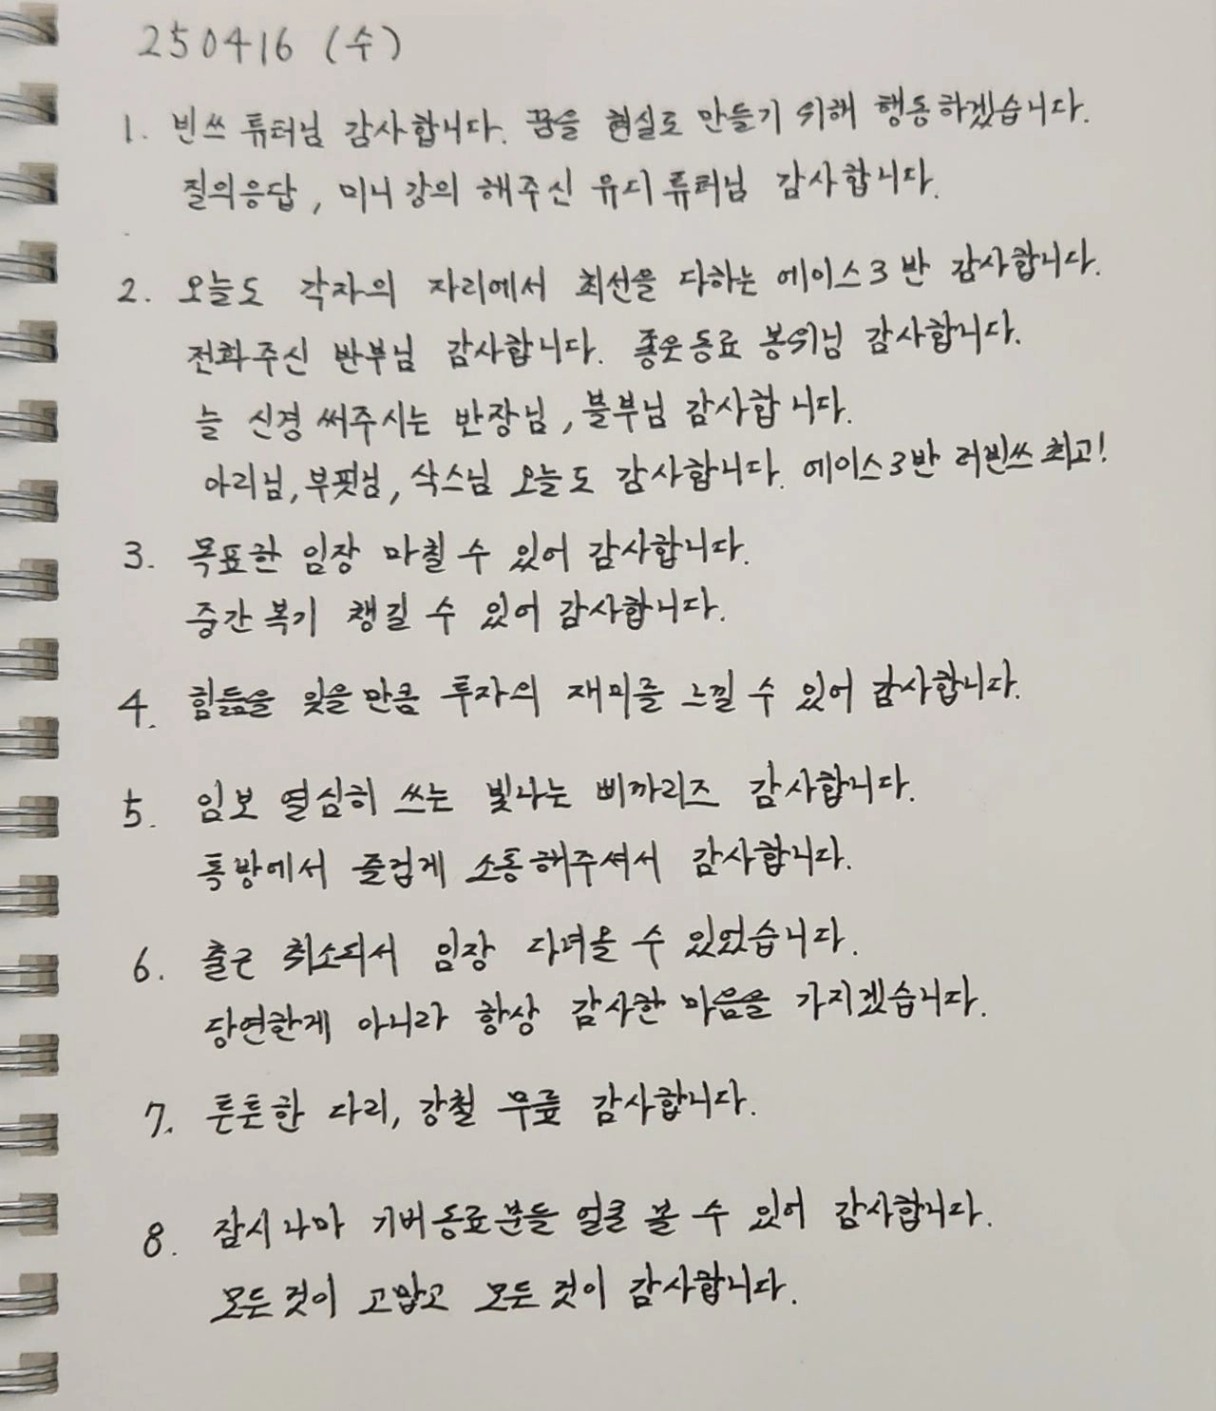 250416 (수)
1. 빈쓰 튜터님 감사합니다. 꿈을 현실로 만들기 위해 행동하겠습니다.
질의응답, 미니 강의 해주신 유디 튜터님 감사합니다.
2. 오늘도 각자의 자리에서 최선을 다하는 에이스3반 감사합니다.
전화주신 반부님 감사합니다. 좋은동료 봉위님 감사합니다.
늘 신경 써주시는 반장님, 불부님 감사합니다.
아리님, 부핏님, 삭스님 오늘도 감사합니다. 에이스3반 러빈쓰 최고!
3. 목표한 임장 마칠 수 있어 감사합니다.
중간 복기 챙길 수 있어 감사합니다.
4. 힘듦을 잊을 만큼 투자의 재미를 느낄 수 있어 감사합니다.
5. 임보 열심히 쓰는 빛나는 삐까리즈 감사합니다.
톡방에서 즐겁게 소통해주셔서 감사합니다.
6. 출근 취소되서 임장 다녀올 수 있었습니다.
당연한게 아니라 항상 감사한 마음을 가지겠습니다.
7. 튼튼한 다리, 강철 무릎 감사합니다.
8. 잠시나마 기버동료분들 얼굴 볼 수 있어 감사합니다.
모든것이 고맙고 모든것이 감사합니다.